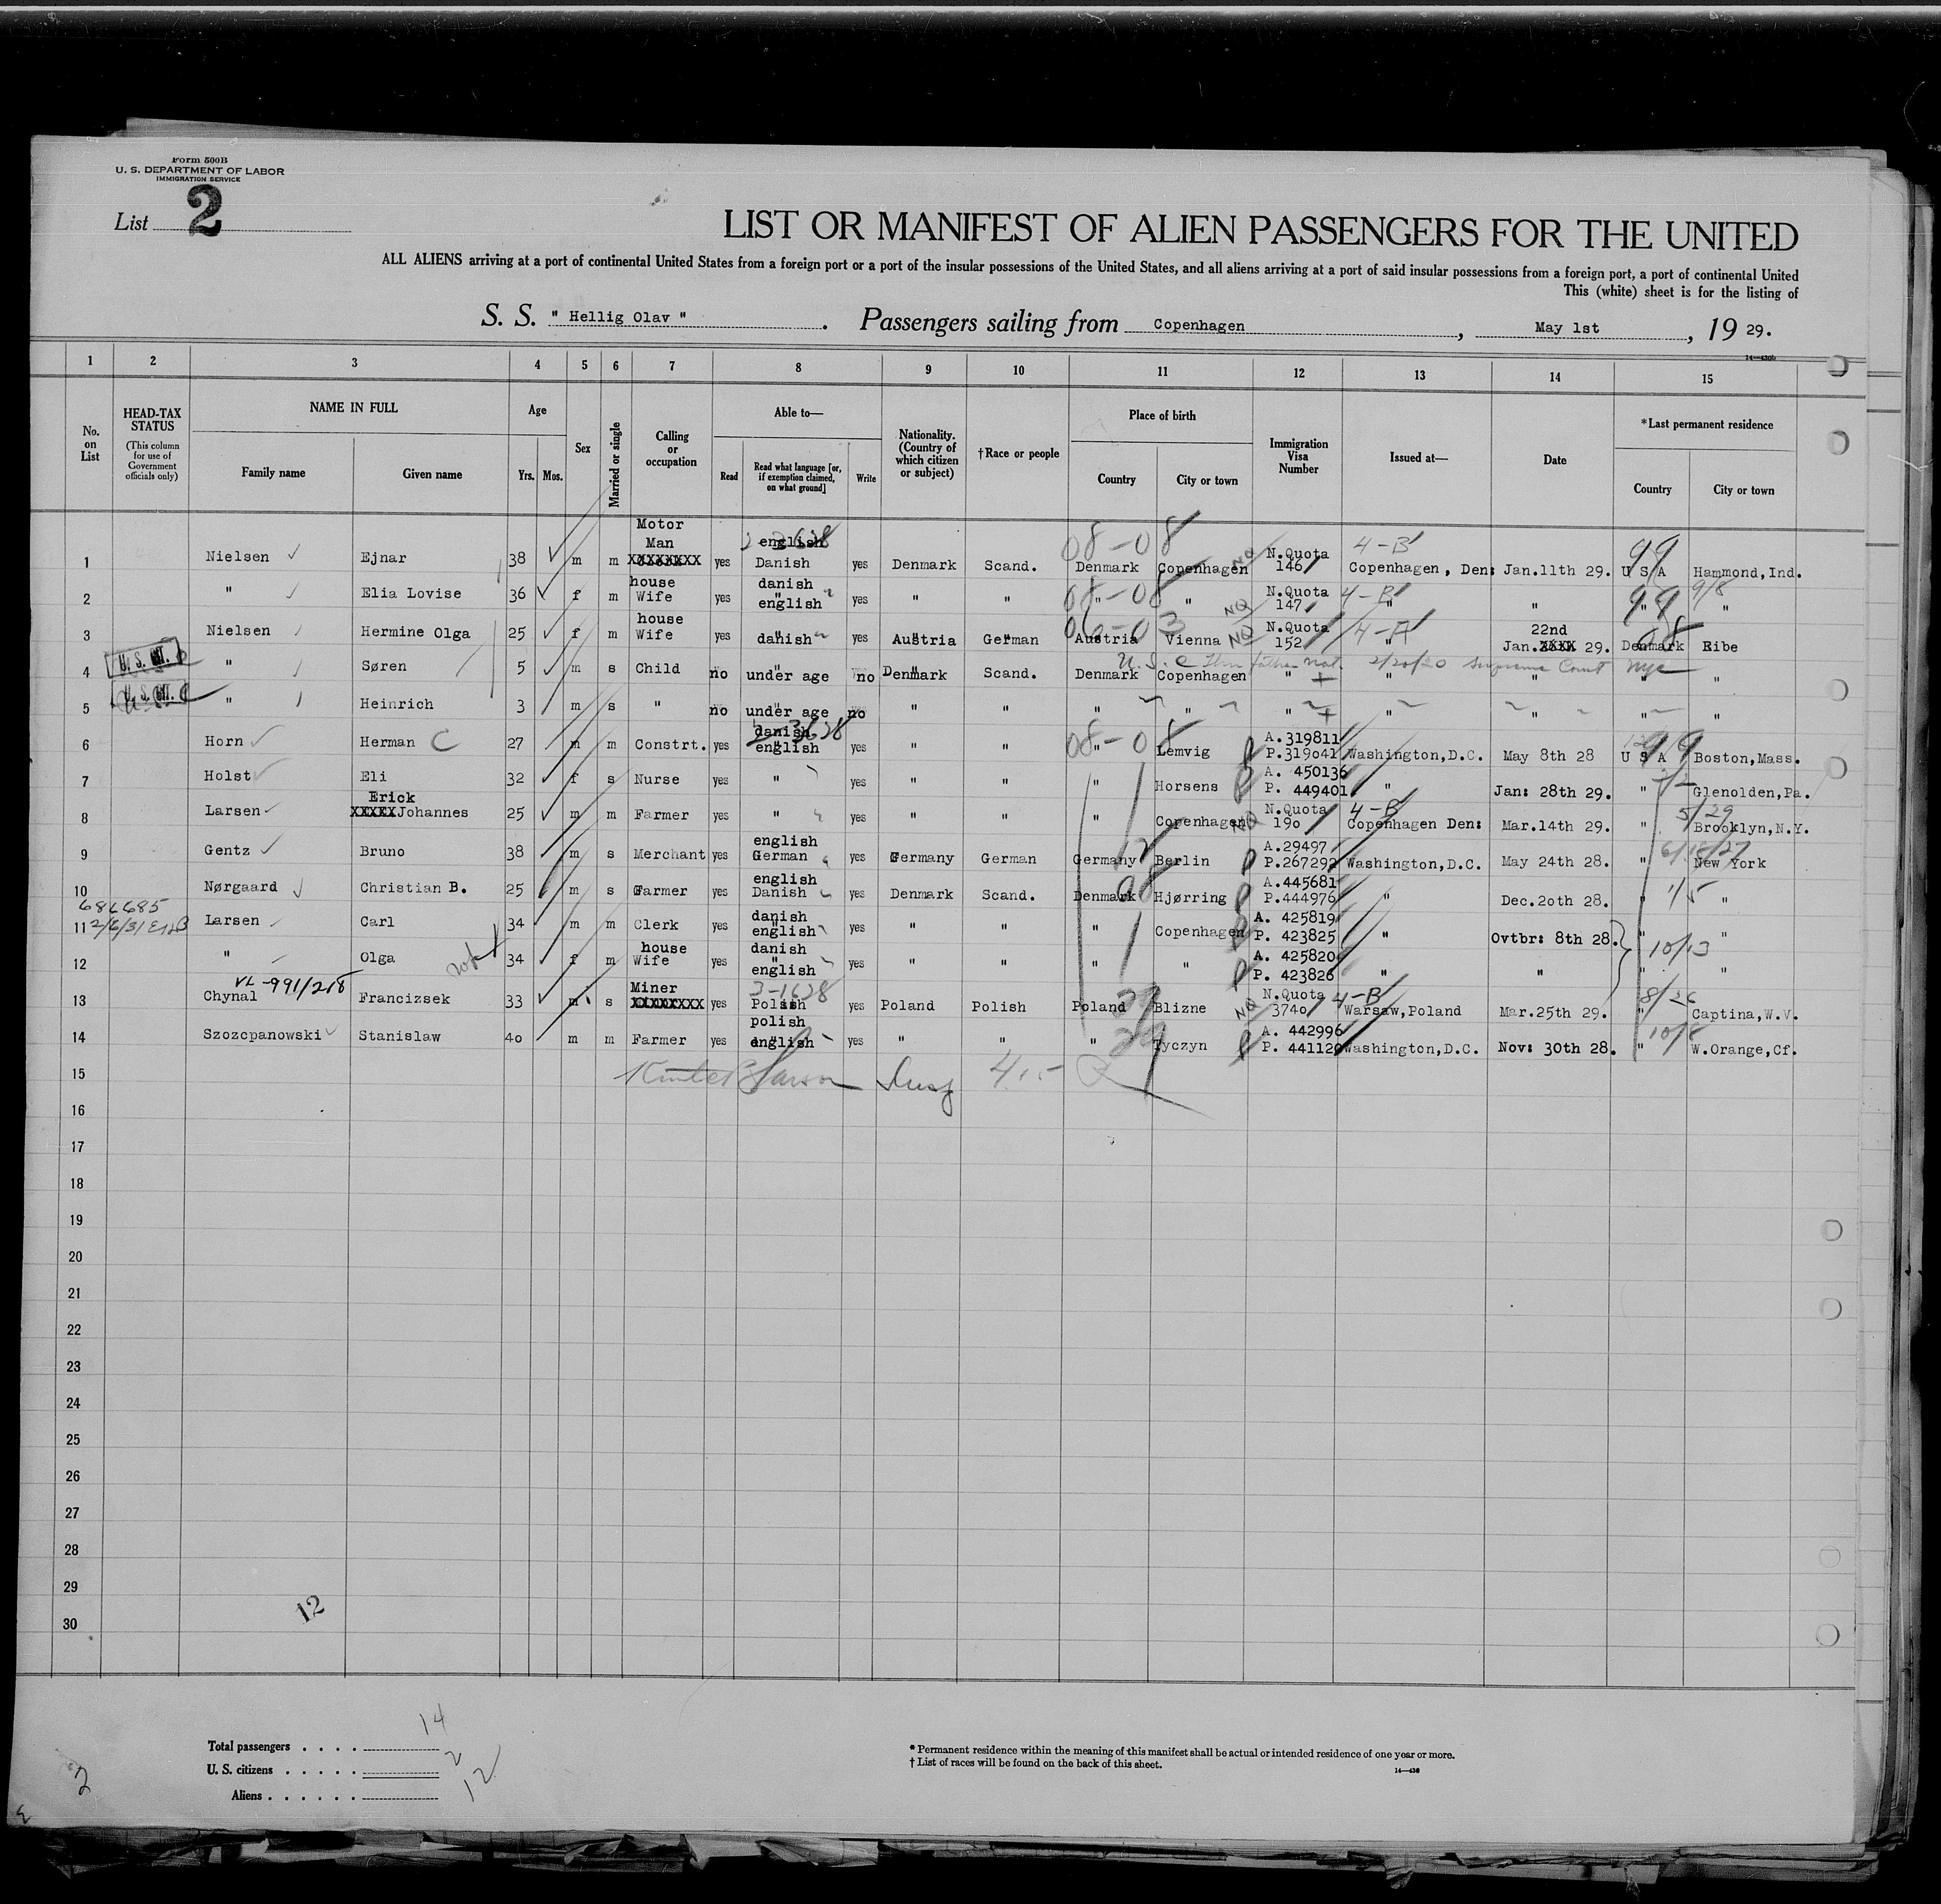 Form 500B
U. S. DEPARTMENT OF LABOR
IMMIGRATION SERVICE
List 2
LIST OR MANIFEST OF ALIEN PASSENGERS FOR THE UNITED
ALL ALIENS arriving at a port of continental United States from a foreign port or a port of the insular possessions of the United States, and all aliens arriving at a port of said insular possessions from a foreign port, a port of continental United
This (white) sheet is for the listing of
S. S. " Hellig Olav " . Passengers sailing from Copenhagen , May 1st , 19 29.
14—430b
1 2 3 4 5 6 7 8 9 10 11 12 13 14 15
No. on List
HEAD-TAX STATUS (This column for use of Government officials only)
NAME IN FULL
Family name
Given name
Age
Yrs. Mos.
Sex
Married or single
Calling or occupation
Able to—
Read
Read what language [or, if exemption claimed, on what ground]
Write
Nationality. (Country of which citizen or subject)
†Race or people
Place of birth
Country
City or town
Immigration Visa Number
Issued at—
Date
*Last permanent residence
Country
City or town
1 Nielsen Ejnar 38 m m Motor Man XXXXXXXX yes english Danish yes Denmark Scand. 08-08 Denmark Copenhagen NQ N.Quota 146 4-B Copenhagen, Den: Jan.11th 29. 99 U S A Hammond,Ind.
2 " Elia Lovise 36 f m house Wife yes danish english yes " " 08-08 " " NQ N.Quota 147 4-B " " 99 " 9/8 "
3 Nielsen Hermine Olga 25 f m house Wife yes danish yes Austria German 06-03 Austria Vienna NQ N.Quota 152 4-A " 22nd Jan.XXXX 29. 08 Denmark Ribe
4 U.S. CIT. " Søren 5 m s Child no under age no Denmark Scand. Denmark Copenhagen " " " " "
U. S. C thru father nat. 2/20/20 Supreme Court NYC
5 U.S. CIT. " Heinrich 3 m s " no under age no " " " " " " " " "
6 Horn Herman C 27 m m Constrt. yes danish english yes " " 08-08 " Lemvig P A.319811 P.319041 Washington,D.C. May 8th 28 99 U S A Boston,Mass.
7 Holst Eli 32 f s Nurse yes " yes " " " Horsens P A. 450136 P. 449401 " Jan: 28th 29. " Glenolden,Pa.
8 Larsen Erick XXXXX Johannes 25 m m Farmer yes " yes " " " Copenhagen NQ N.Quota 19o 4-B Copenhagen Den: Mar.14th 29. " 5/29 Brooklyn,N.Y.
9 Gentz Bruno 38 m s Merchant yes english German yes Germany German Germany Berlin P A.29497 P.267292 Washington,D.C. May 24th 28. " 6/18/27 New York
10 Nørgaard Christian B. 25 m s Farmer yes english Danish yes Denmark Scand. Denmark 08 Hjørring P A.445681 P.444976 " Dec.2oth 28. " 1/5 "
686685
11 2/6/31 Larsen Carl 34 m m Clerk yes danish english yes " " " Copenhagen P A. 425819 P. 423825 " Ovtbr: 8th 28. " 10/13 "
12 " Olga 34 f m house Wife yes danish english yes " " " " P A. 425820 P. 423826 " " " "
VL-991/218
13 Chynal Francizsek 33 m s Miner XXXXXXXX yes 3-1628 Polish yes Poland Polish Poland 29 Blizne NQ N.Quota 374o 4-B Warsaw,Poland Mar.25th 29. " 8/26 Captina,W.V.
14 Szozcpanowski Stanislaw 4o m m Farmer yes polish english yes " " " 29 Tyczyn P A. 442996 P. 441120 Washington,D.C. Nov: 30th 28. " 10/8 W.Orange,Cf.
15
16
17
18
19
20
21
22
23
24
25
26
27
28
29
30
12
Total passengers . . . . 14
U. S. citizens . . . . . 2
Aliens . . . . . . 12
2
* Permanent residence within the meaning of this manifest shall be actual or intended residence of one year or more.
† List of races will be found on the back of this sheet.
14—430